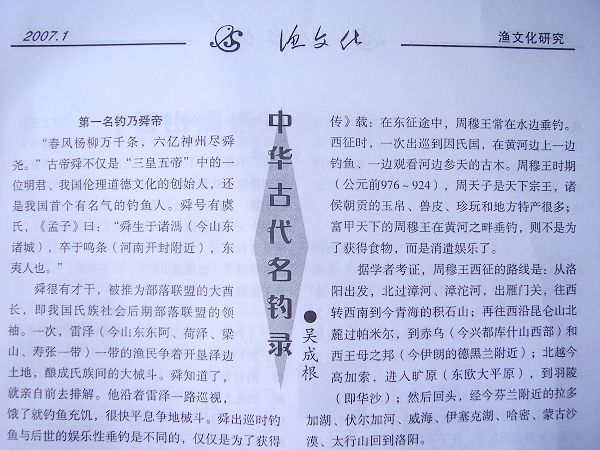 2007.1
渔文化
渔文化研究
中华古代名钓录
●吴成根
第一名钓乃舜帝
“春风杨柳万千条，六亿神州尽舜
尧。”古帝舜不仅是“三皇五帝”中的一
位明君、我国伦理道德文化的创始人，还
是我国首个有名气的钓鱼人。舜号有虞
氏，《孟子》曰：“舜生于诸冯（今山东
诸城），卒于鸣条（河南开封附近），东
夷人也。”
舜很有才干，被推为部落联盟的大酋
长，即我国氏族社会后期部落联盟的领
袖。一次，雷泽（今山东东阿、荷泽、梁
山、寿张一带）一带的渔民争着开垦泽边
土地，酿成氏族间的大械斗。舜知道了，
就亲自前去排解。他沿着雷泽一路巡视，
饿了就钓鱼充饥，很快平息争地械斗。舜出巡时钓
鱼与后世的娱乐性垂钓是不同的，仅仅是为了获得
传》载：在东征途中，周穆王常在水边垂钓。
西征时，一次出巡到因氏国，在黄河边上一边
钓鱼、一边观看河边参天的古木。周穆王时期
（公元前976～924），周天子是天下宗王，诸
侯朝贡的玉帛、兽皮、珍玩和地方特产很多；
富甲天下的周穆王在黄河之畔垂钓，则不是为
了获得食物，而是消遣娱乐了。
据学者考证，周穆王西征的路线是：从洛
阳出发，北过漳河、滹沱河，出雁门关，往西
转西南到今青海的积石山；再往西沿昆仑山北
麓过帕米尔，到赤乌（今兴都库什山西部）和
西王母之邦（今伊朗的德黑兰附近）；北越今
高加索，进入旷原（东欧大平原），到羽陵
（即华沙）；然后回头，经今芬兰附近的拉多
加湖、伏尔加河、咸海、伊塞克湖、哈密、蒙古沙
漠、太行山回到洛阳。